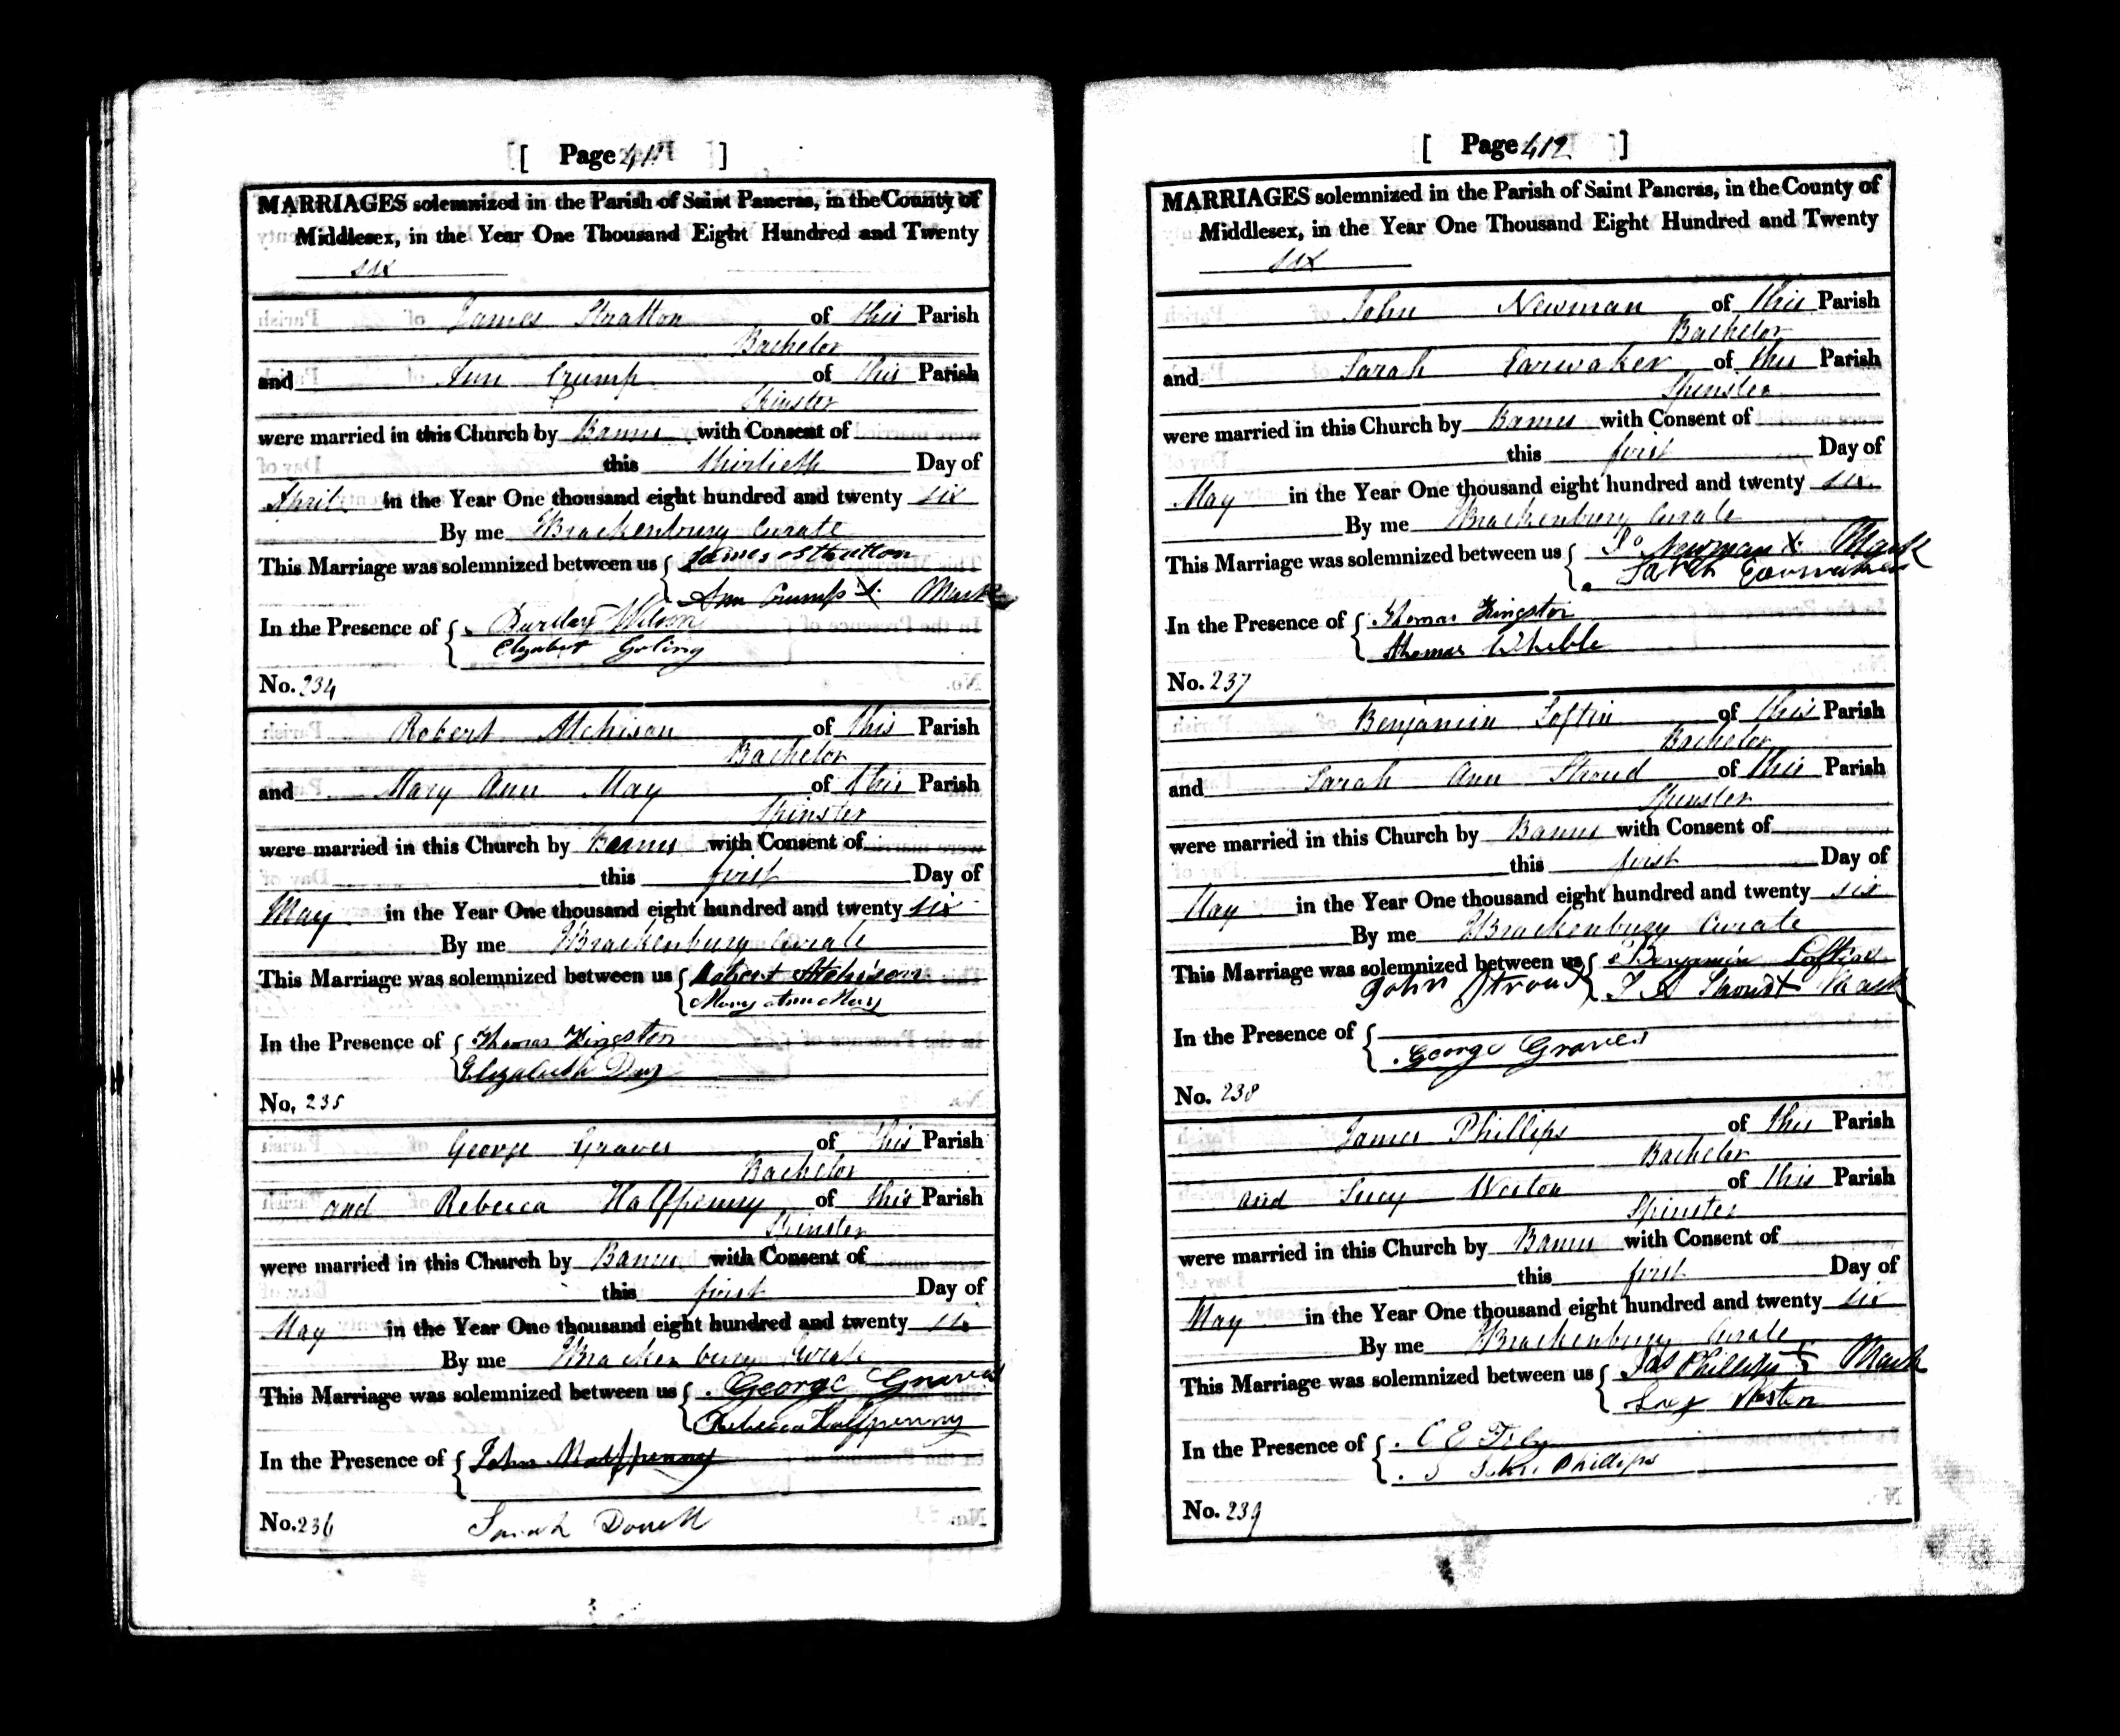 [ Page 411 ]
MARRIAGES solemnized in the Parish of Saint Pancras, in the County of
Middlesex, in the Year One Thousand Eight Hundred and Twenty
six
James Stratton of this Parish
Bachelor
and Ann Crump of this Parish
Spinster
were married in this Church by Banns with Consent of
this thirtieth Day of
April in the Year One thousand eight hundred and twenty six
By me Brackenbury Curate
This Marriage was solemnized between us { James Stratton
Ann Crump X Mark
In the Presence of { Wilson
Elizabet Goling
No. 234
Robert Atchison of this Parish
Bachelor
and Mary Ann May of this Parish
Spinster
were married in this Church by Banns with Consent of
this first Day of
May in the Year One thousand eight hundred and twenty six
By me Brackenbury Curate
This Marriage was solemnized between us { Robert Atchison
Mary Ann May
In the Presence of { Thomas Kingston
Elizabeth Day
No. 235
George Graves of this Parish
Bachelor
and Rebecca Halfpenny of this Parish
Spinster
were married in this Church by Banns with Consent of
this first Day of
May in the Year One thousand eight hundred and twenty six
By me Brackenbury Curate
This Marriage was solemnized between us { George Graves
Rebecca Halfpenny
In the Presence of { John Halfpenny
No. 236 Sarah
[ Page 412 ]
MARRIAGES solemnized in the Parish of Saint Pancras, in the County of
Middlesex, in the Year One Thousand Eight Hundred and Twenty
six
John Newman of this Parish
Bachelor
and Sarah Earwaker of this Parish
Spinster
were married in this Church by Banns with Consent of
this first Day of
May in the Year One thousand eight hundred and twenty six
By me Brackenbury Curate
This Marriage was solemnized between us { Jo Newman X Mark
Sarah Earwaker
In the Presence of { Thomas Kingston
Thomas Wheble
No. 237
Benjamin Loftin of this Parish
Bachelor
and Sarah Ann Stroud of this Parish
Spinster
were married in this Church by Banns with Consent of
this first Day of
May in the Year One thousand eight hundred and twenty six
By me Brackenbury Curate
This Marriage was solemnized between us { Benjamin Loftin
John Stroud S A Stroud X Mark
In the Presence of {
George Graves
No. 238
James Phillips of this Parish
Bachelor
and Lucy Weston of this Parish
Spinster
were married in this Church by Banns with Consent of
this first Day of
May in the Year One thousand eight hundred and twenty six
By me Brackenbury Curate
This Marriage was solemnized between us { Jas Phillips X Mark
Lucy Weston
In the Presence of { C E
John Phillips
No. 239